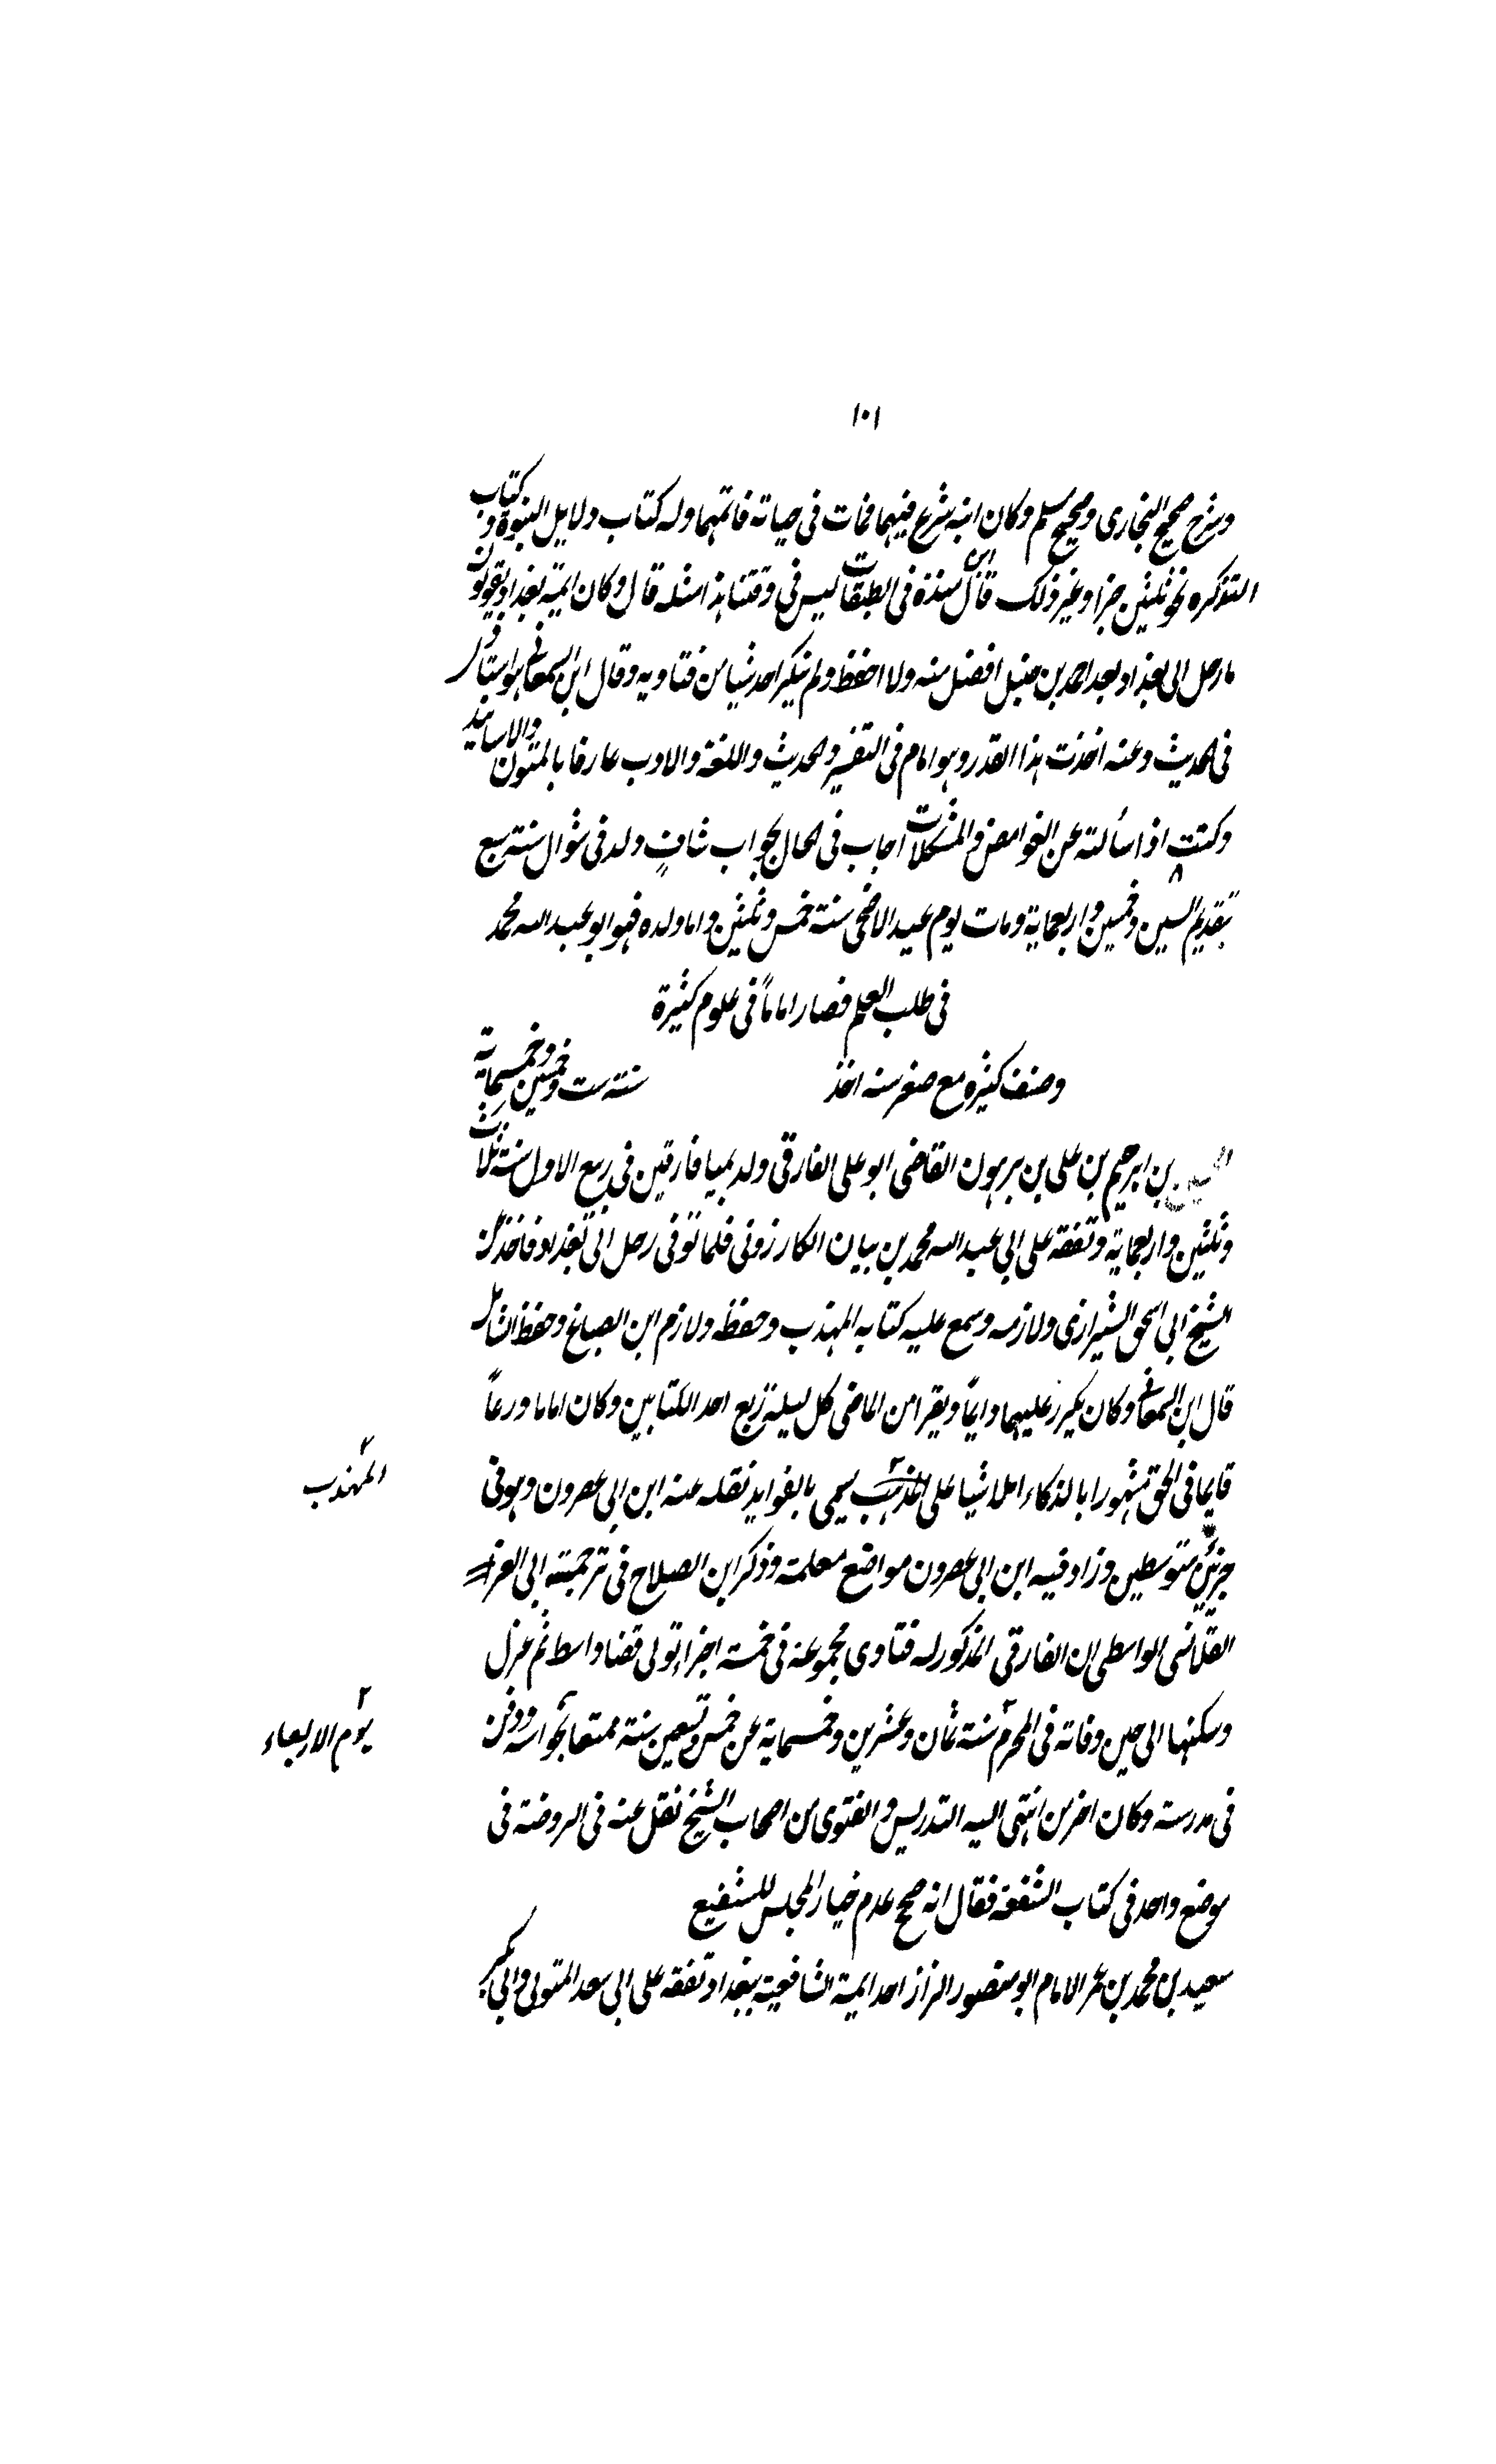 ١٠١
وشرح صحيح البخارى وصحيح مسلم وكان ابنه شرع فيهما فمات فى حياته فاتمهما وله كتاب دلايل النبوة وكتاب
التذكره نحو ثلثين جزا وغير ذلك قال ابن مندة فى الطبقات ليس فى وقتنا هذا مثله قال وكان ايمة بغداد يقولون
ما رحل الى بغداد بعد احمد بن حنبل افضل منه ولا احفظ ولم ينكر احد شيا من فتاويه وقال ابن السمعانى هو استاذى
فى الحديث وعنه اخذت هذا القدر وهو امام فى التفسير والحديث واللغة والادب عارفا بالمتون والاسانيد
وكنت اذا سألته عن الغوامض والمشكلات اجاب فى الحال بجواب شافٍ ولد فى شوال سنة سبع
بتقديم السين وخمسين واربعماية ومات يوم عيد الاضحى سنة خمس وثلثين واما ولده فهو ابو عبد الله محمد
فى طلب العلم فصار اماماً فى علوم كثيرة
وصنف كثيره مع صغر سنه اخذ سنة ست وخمسين وخمسماية
بن ابرهيم بن على بن برهون القاضى ابو على الفارقى ولد بميافارقين فى ربيع الاول سنة ثلاث
وثلثين واربعماية وتفقه على ابى عبد الله محمد بن بيان الكازرونى فلما توفى رحل الى بغداد فاخذ عن
الشيخ ابى اسحق الشيرازى ولازمه وسمع عليه كتابه المهذب وحفظه ولازم ابن الصباغ وحفظ الشامل
قال ابن السمعانى وكان يكرر عليهما دايماً ويقرا من الماضى كل ليلة ربع احد الكتابين وكان اماما ورعاً
قايما فى الحق مشهورا بالذكاء املا شيا على المذهب يسمى بالفوايد نقله عنه ابن ابى عصرون وهو فى
المهذب
جزئين متوسطين وزاد فيه ابن ابى عصرون مواضع معلمة وذكر ابن الصلاح فى ترجمة ابى العز
القلانسى الواسطى ان الفارقى المذكور له فتاوى مجموعة فى خمسة اجزاء تولى قضا واسط ثم عزل
وسكنها الى حين وفاته فى المحرم سنة ثمان وعشرين وخمسماية عن خمس وتسعين سنة ممتعا بحواسه ودفن
يوم الاربعاء
فى مدرسته وكان اخر من انتهى اليه التدريس والفتوى من اصحاب الشيخ نقل عنه فى الروضة فى
موضع واحد فى كتاب الشفعة فقال انه صحح عدم خيار المجلس للشفيع
سعيد بن محمد بن عمر الامام ابو منصور الرزاز احد ايمة الشافعية ببغداد تفقه على ابى سعد المتولى وابى بكر